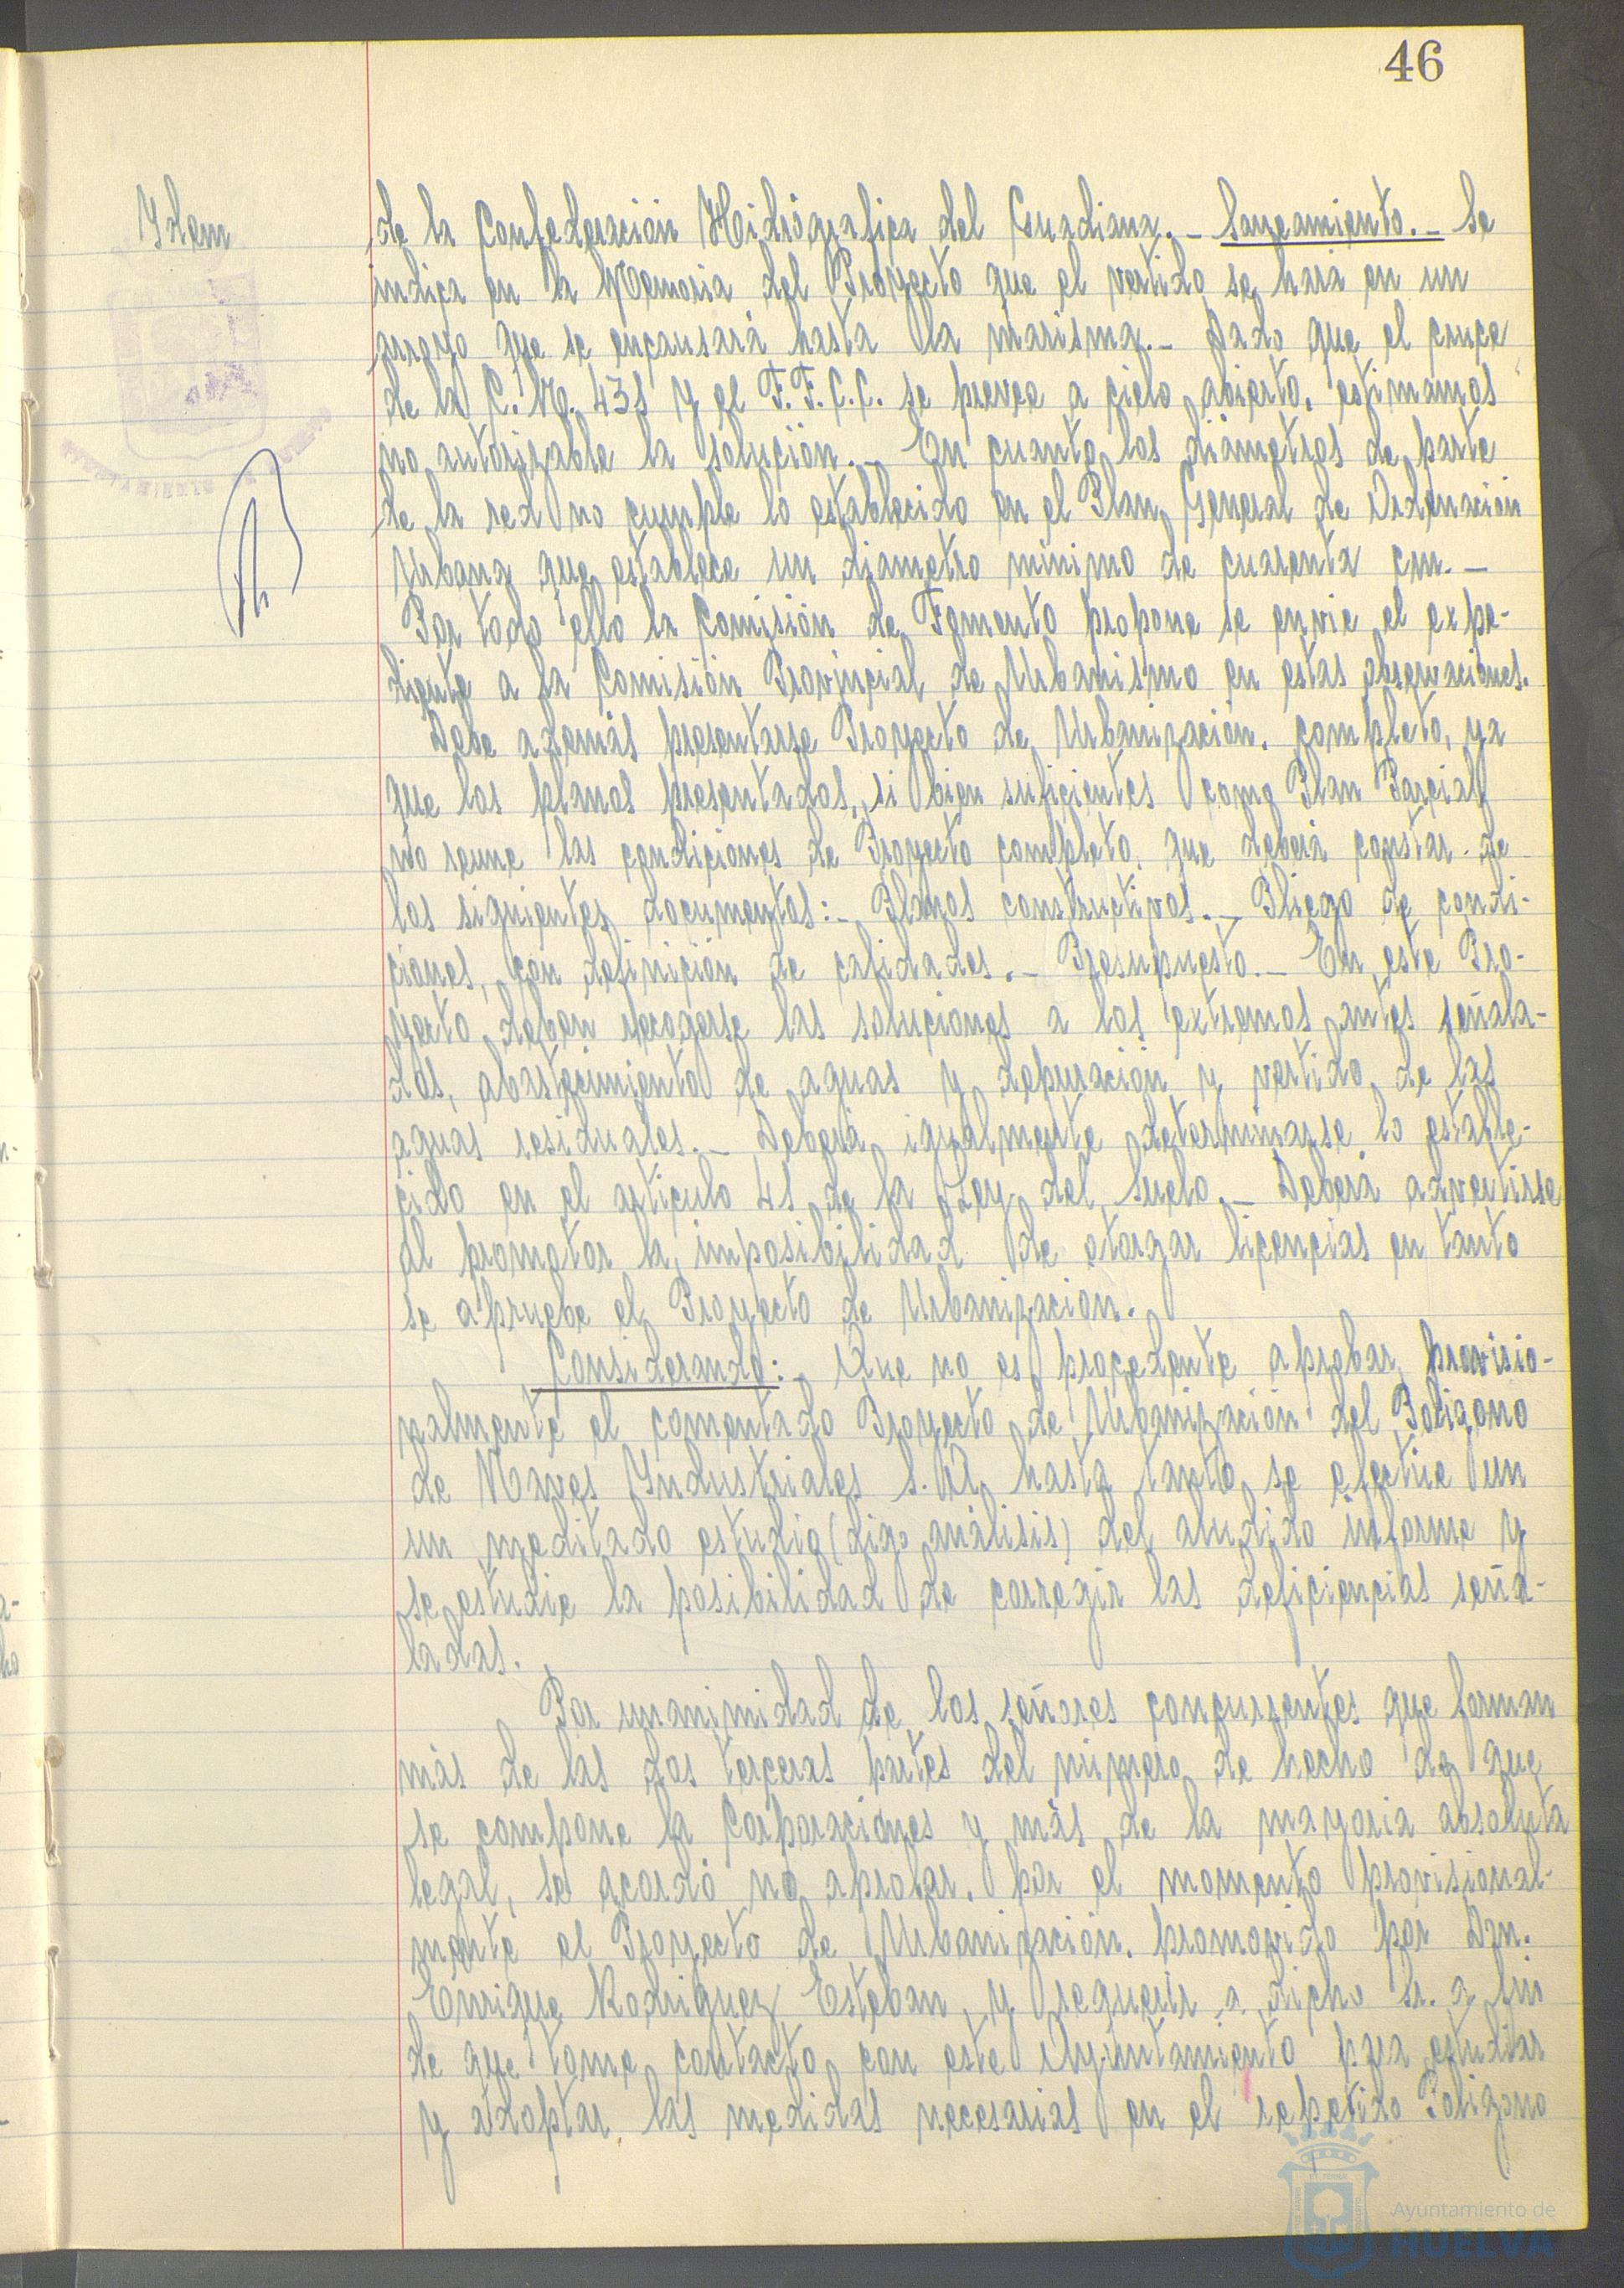 46
Ydem
de la Confederación Hidrógrafica del Guadiana.- Saneamiento.- Se
indica en la Memoria del Proyecto que el vertido se hará en un
arroyo que se encausará hasta la marisma.- Dado que el cruce
de la C.N. 431 y el F.F.C.C. se prevee a cielo abierto, estimamos
no autorizable la solución.- En cuanto los diámetros de parte
de la red no cumple lo establecido en el Plan General de Ordenación
Urbana que establece un diametro mínimo de cuarenta cm.-
Por todo ello la Comisión de Fomento propone se envie el expe-
diente a la Comisión Provincial de Urbanismo en estas observaciones.
Debe además presentarse Proyecto de Urbanización, completo, ya
que los planos presentados, si bien suficientes como Plan Parcial
no reune las condiciones de Proyecto completo, que deberá constar de
los siguientes documentos:- Planos constructivos.- Pliego de condi-
ciones, con definición de calidades.- Presupuesto.- En este Pro-
yecto deben recogerse las soluciones a los extremos antes señala-
dos, abastecimiento de aguas y depuración y vertido de las
aguas residuales.- Deberá igualmente determinarse lo estable-
cido en el articulo 41 de la Ley del Suelo.- Deberá advertirse
al promotor la imposibilidad de otorgar licencias en tanto
se apruebe el Proyecto de Urbanización.
Considerando:- Que no es procedente aprobar provisio-
nalmente el comentado Proyecto de Urbanización del Poligono
de Naves Yndustriales S.A. hasta tanto se efectúe un
un meditado estudio (digo análisis) del aludido informe y
se estudie la posibilidad de corregir las deficiencias seña-
ladas.
Por unanimidad de los señores concurrentes que forman
más de las dos terceras partes del número de hecho de que
se compone la Corporaciones y más de la mayoria absoluta
legal, se acordó no aprobar, por el momento provisional-
mente el Proyecto de Urbanización, promovido por Don.
Enrique Rodriguez Esteban, y requerir a dicho Sr. a fin
de que tome contacto con este Ayuntamiento para estudiar
y adoptar las medidas necesarias en el repetido Poligono
Ayuntamiento de
HUELVA